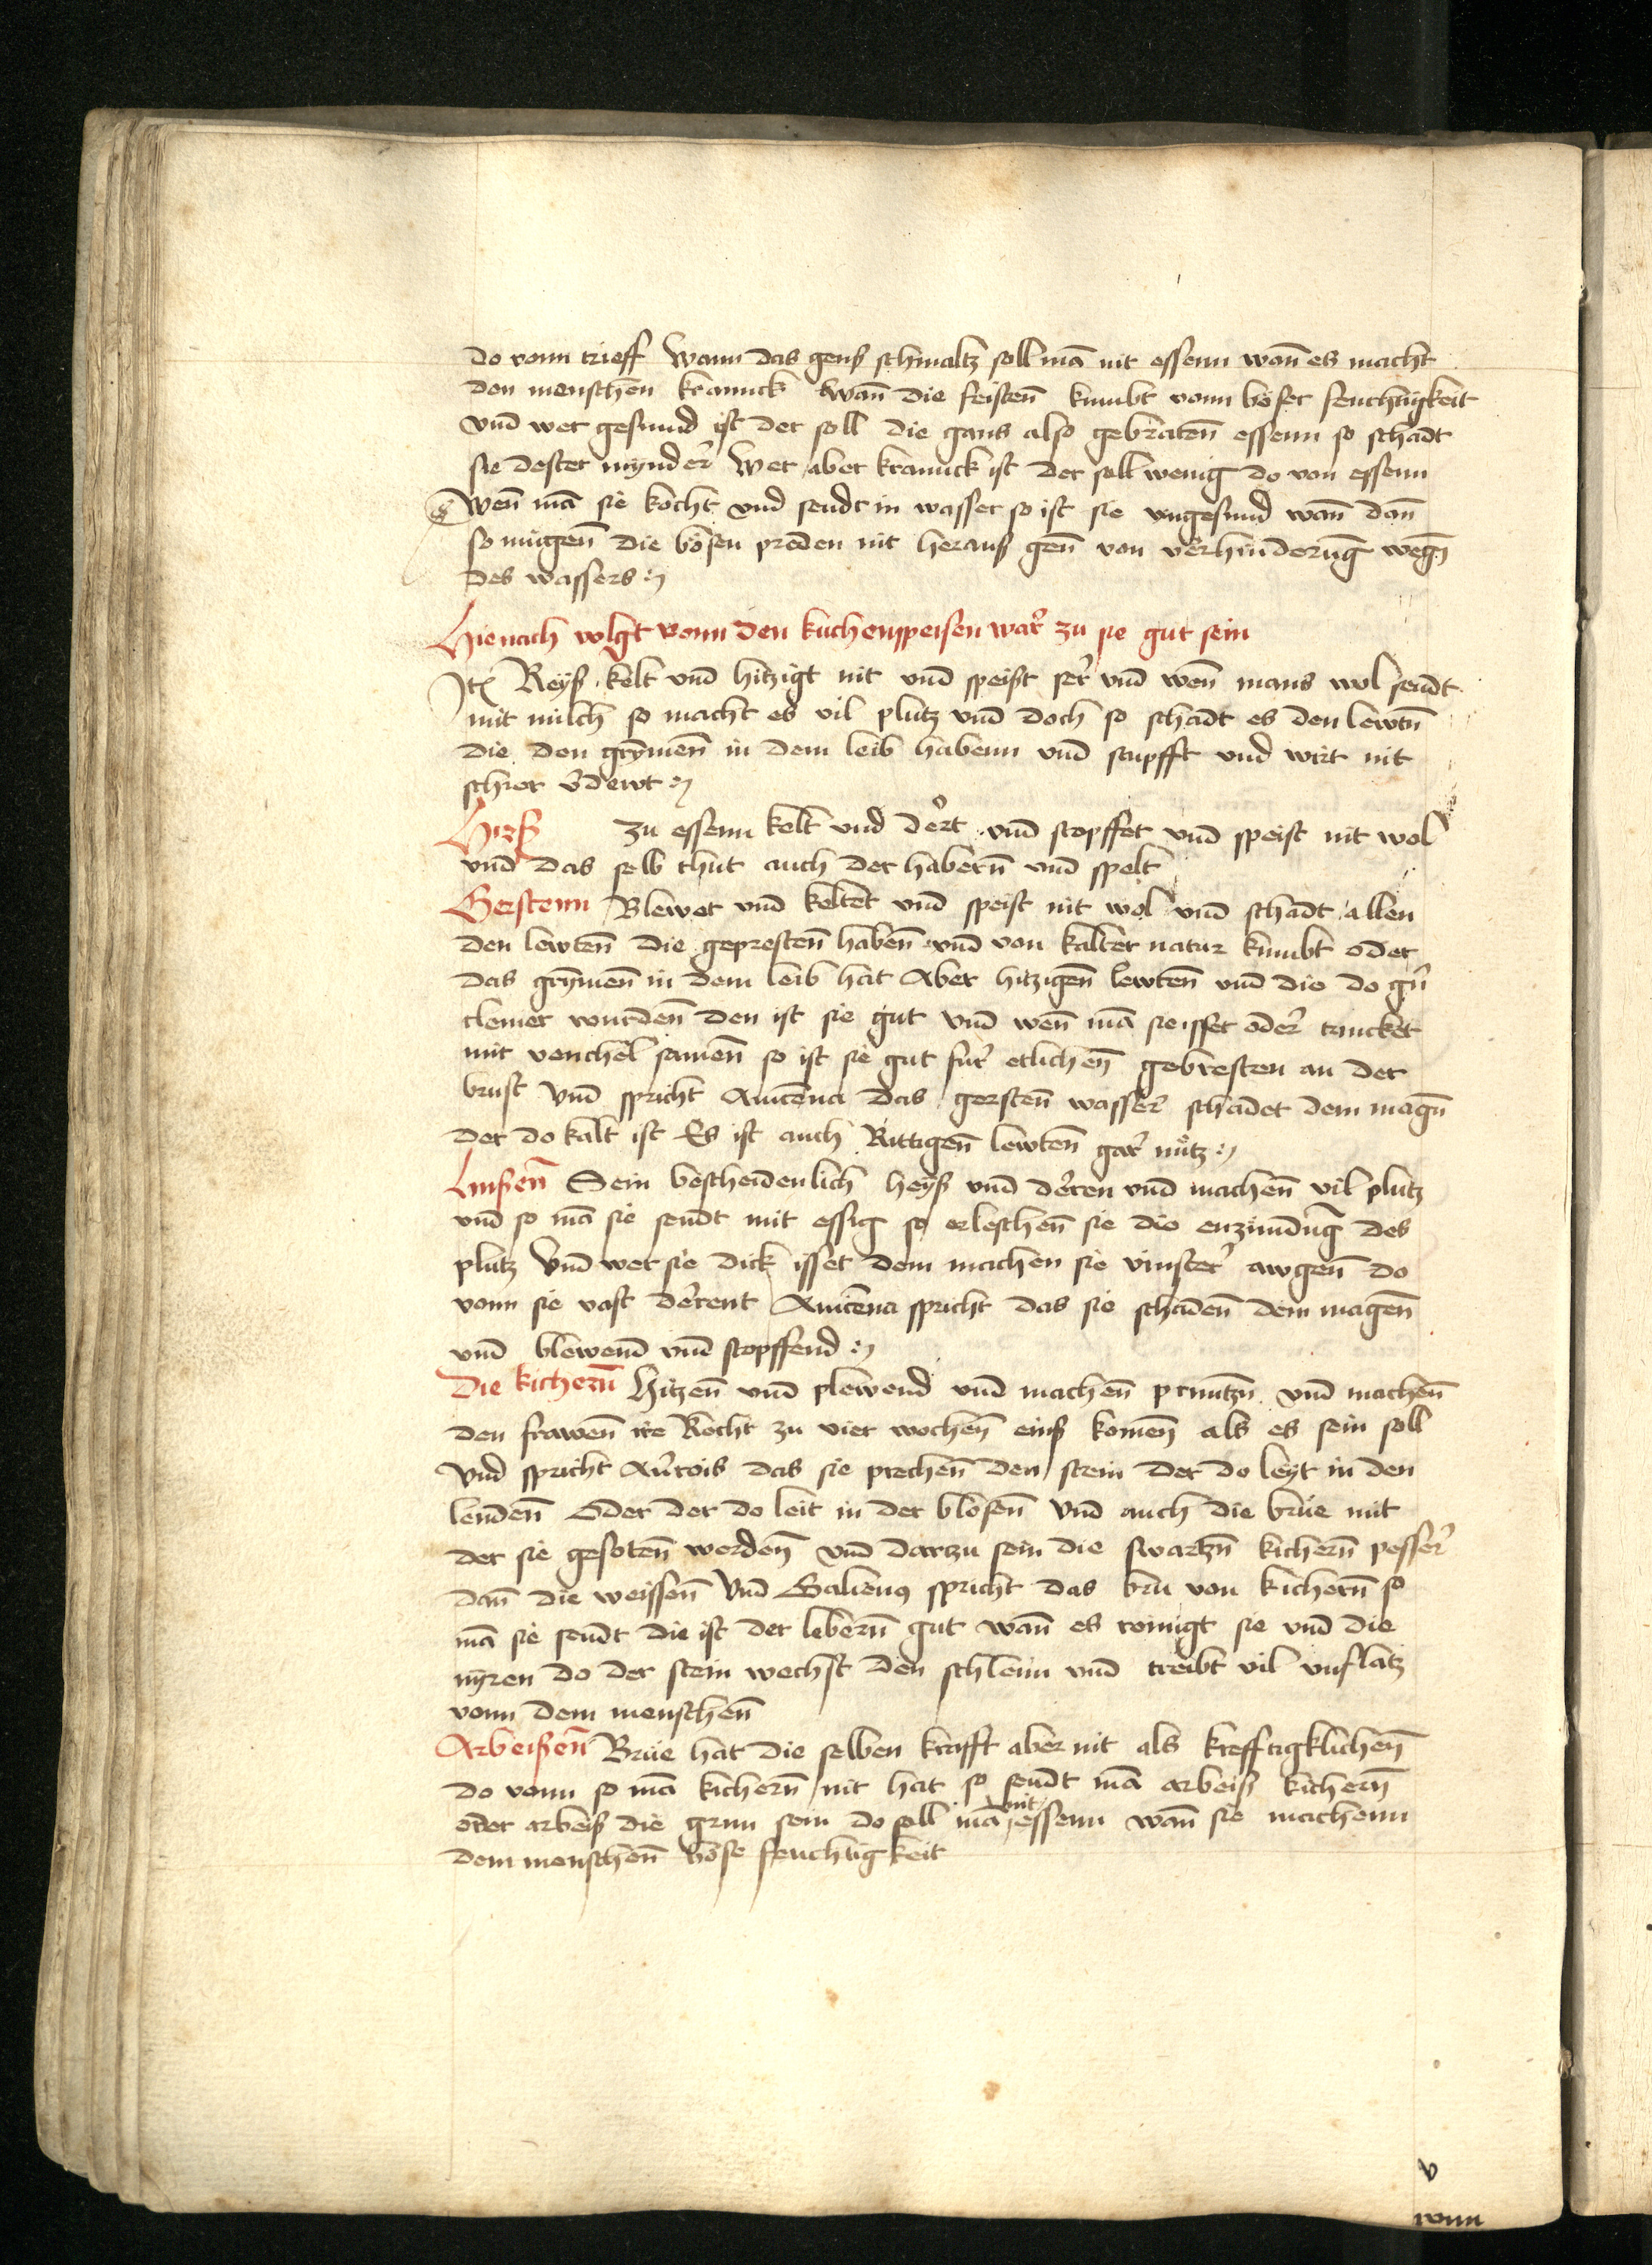 do vonn trieff Wann das genß schmaltz soll mā nit essenn wañ es macht
den menschen kranнck Wañ die feisteñ kumbt vonn böser feuchtigkeit
vnd wer gesunnd ist der soll die gans also gebrateñ essenn so schadt
sie dester mynder Wer aber kranck ist der soll wenig do von essenn
Weñ mā sie kocht vnd seudt in wasser so ist sie vngesund wañ dañ
so mügeñ die bösen predem nit herauß geñ von verhinderūg wegñ
des wassers
Hienach volgt vonn den kuchenspeisen war zu sie gut sein
Jtē Reyß kelt vnd hitzigt nit vnd speist ser vnd weñ mans wol seudt
mit milch so macht es vil plutz vnd doch so schadt es den lewtñ
die den grymeñ in dem leib habenn vnd stupfft vnd wirt nit
schier v̄dewt
Hirß zu essenn kelt vnd dert vnd stopffet vnd speist nit wol
vnd das selb thut auch der haberñ vnd spelt
Gerstenn Blewet vnd keltet vnd speist nit wol vnd schadt allen
den lewteñ die geprесteñ habeñ vnd von kalter natur kumbt oder
das grymeñ in dem leib hat Aber hitzigeñ lewteñ vnd die do gñ
clener wurdeñ den ist sie gut vnd weñ mā sie isset oder trincket
mit venchel sameñ so ist sie gut fur etlicheñ gebresten an der
brust Vnd spricht Auicenna das gersteñ wasser schadet dem magñ
der do kalt ist Es ist auch Rittigeñ lewteñ gar nütz
Linßeñ Sein bescheidenlich heyß vnd deren vnd macheñ vil plutz
vnd so mā sie seudt mit essig so erlescheñ sie die enzündūg des
plutz Vnd wer sie dick isset dem machen sie vinster awgeñ do
vonn sie vast derent Auicenna spricht das sie schadeñ dem mageñ
vnd blewend vnd stopffend
Die kicherñ Hitzeñ vnd plewend vnd macheñ prüntzñ vnd macheñ
den fraweñ ire Recht zu vier wocheñ einß komeñ als es sein soll
Vnd spricht Au̓rois das sie precheñ den stein der do leyt in den
lendeñ Oder der do leit in der bloseñ Vnd auch die brüe mit
der sie gesoteñ werdeñ vnd darzu sein die swartzñ kicherñ pesser
dañ die weisseñ Vnd Galienus spricht das brü von kicherñ so
mā sie seudt die ist der leberñ gut wañ es reinigt sie vnd die
nyren do der stein wechst den schleim vnd treibt vil vnflatz
vonn dem menscheñ
Arbeißeñ Brüe hat die selben krafft aber nit als krefftigklicheñ
do vonn so mā kicherñ nit hat so seudt mā arbeiß kicherñ
oder arbeiß die grün sein do soll mā nit essenn wañ sie machenn
dem menscheñ böse feuchtigkeit